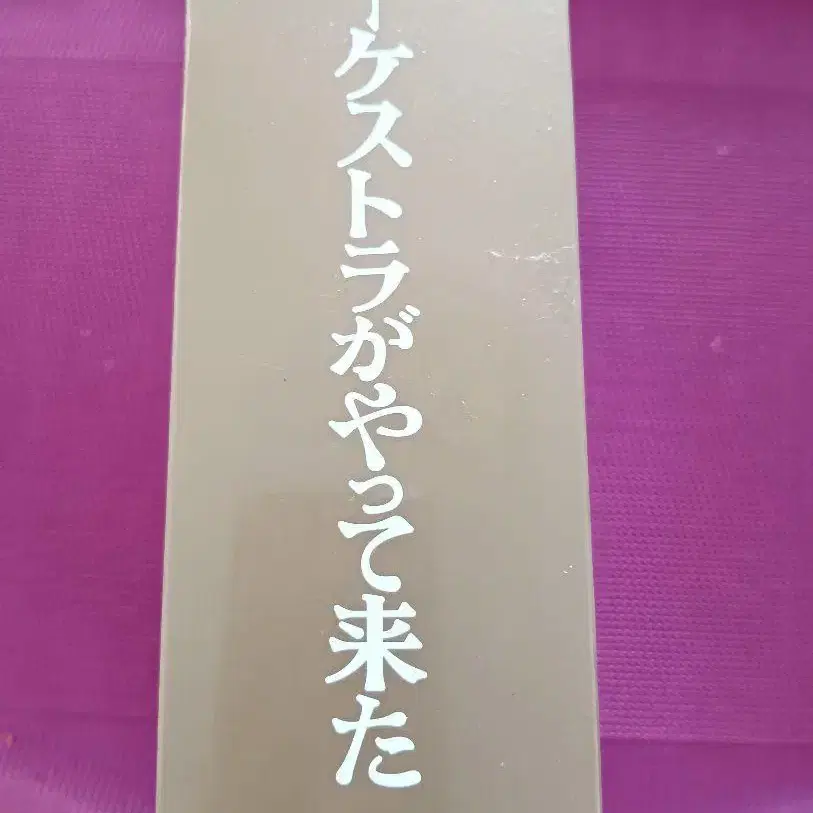 ーケストラがやって来た